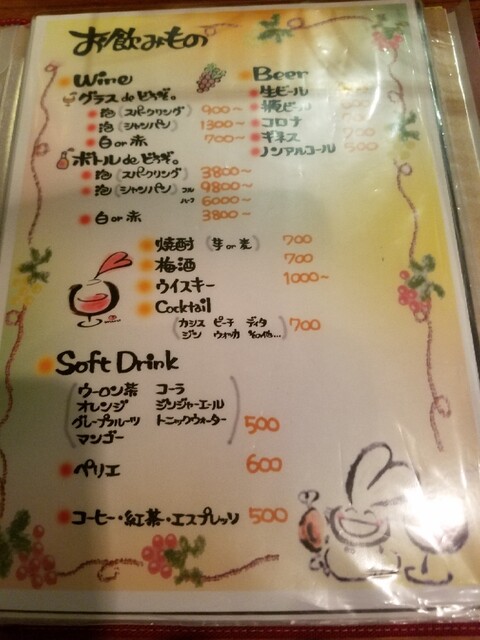 お飲みもの
Wine
グラス de どうぞ。
泡 (スパークリング) 900~
泡 (シャンパン) 1300~
白 or 赤 700~
ボトル de どうぞ。
泡 (スパークリング) 3800~
泡 (シャンパン) フル 9800~
ハーフ 6000~
白 or 赤 3800~
Beer
生ビール
瓶ビール
コロナ
ギネス 700
ノンアルコール 500
焼酎 (芋 or 麦) 700
梅酒 700
ウイスキー 1000~
Cocktail
(カシス ピーチ ディタ
ジン ウォッカ その他...) 700
Soft Drink
ウーロン茶 コーラ
オレンジ ジンジャーエール
グレープフルーツ トニックウォーター 500
マンゴー
ペリエ 600
コーヒー・紅茶・エスプレッソ 500